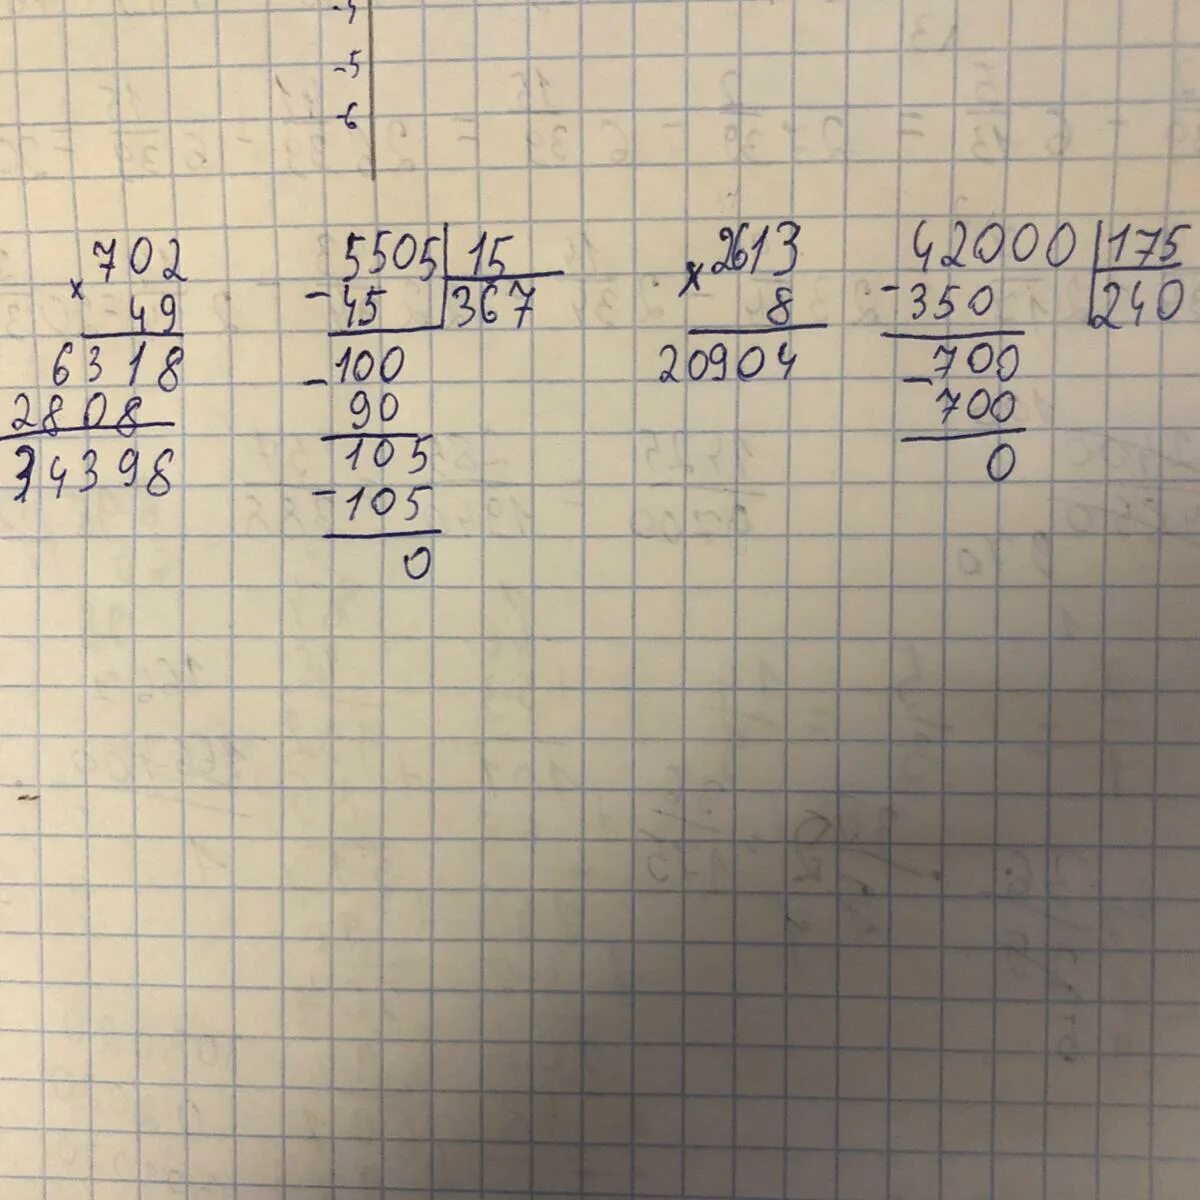 -5
-6
702
× 49
6318
2808
34398
5505 | 15
- 45 | 367
100
- 90
105
- 105
0
2613
× 8
20904
42000 | 175
- 350 | 240
700
- 700
0